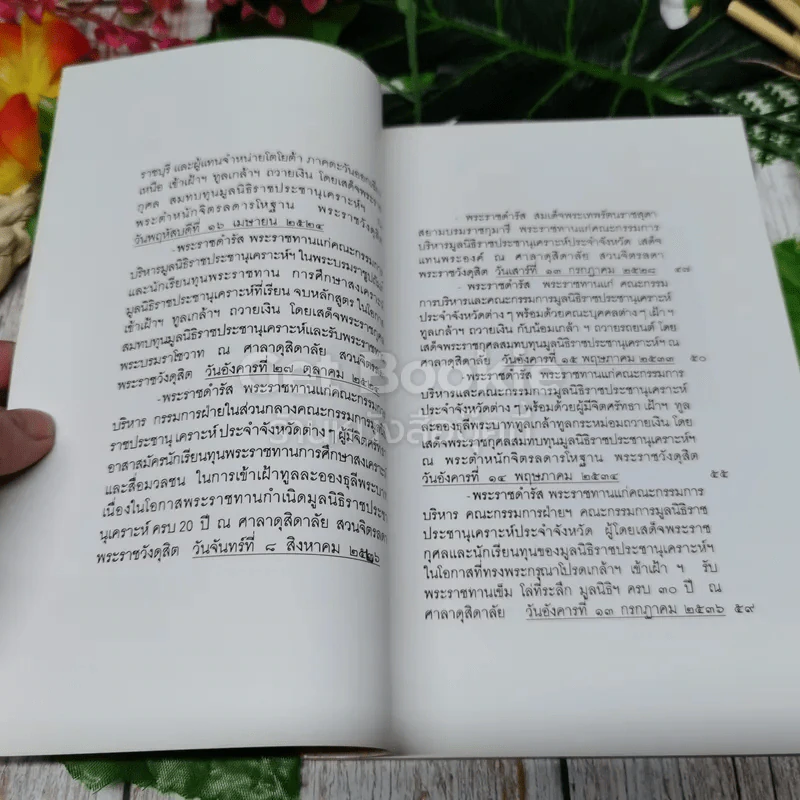 ราชบุรี และผู้แทนจำหน่ายโตโยต้า ภาคตะวันออกเฉียง
เหนือ เข้าเฝ้าฯ ทูลเกล้าฯ ถวายเงิน โดยเสด็จพระราช
กุศล สมทบทุนมูลนิธิราชประชานุเคราะห์ฯ ณ
พระตำหนักจิตรลดารโหฐาน พระราชวังดุสิต
วันพฤหัสบดีที่ ๑๖ เมษายน ๒๕๒๔
-พระราชดำรัส พระราชทานแก่คณะกรรมการ
บริหารมูลนิธิราชประชานุเคราะห์ฯ ในพระบรมราชูปถัมภ์
และนักเรียนทุนพระราชทาน การศึกษาสงเคราะห์
มูลนิธิราชประชานุเคราะห์ที่เรียน จบหลักสูตร ในโอกาส
เข้าเฝ้าฯ ทูลเกล้าฯ ถวายเงิน โดยเสด็จพระราชกุศล
สมทบทุนมูลนิธิราชประชานุเคราะห์และรับพระราชทาน
พระบรมราโชวาท ณ ศาลาดุสิดาลัย สวนจิตรลดา
พระราชวังดุสิต วันอังคารที่ ๒๗ ตุลาคม
-พระราชดำรัส พระราชทานแก่คณะกรรมการ
บริหาร กรรมการฝ่ายในส่วนกลางคณะกรรมการมูลนิธิ
ราชประชานุเคราะห์ ประจำจังหวัดต่างๆ ผู้มีจิตศรัทธา
อาสาสมัครนักเรียนทุนพระราชทานการศึกษาสงเคราะห์
และสื่อมวลชน ในการเข้าเฝ้าทูลละอองธุลีพระบาท
เนื่องในโอกาสพระราชทานกำเนิดมูลนิธิราชประชา
นุเคราะห์ ครบ 20 ปี ณ ศาลาดุสิดาลัย สวนจิตรลดา
พระราชวังดุสิต วันจันทร์ที่ ๘ สิงหาคม ๒๕๒๖
-พระราชดำรัส สมเด็จพระเทพรัตนราชสุดา
สยามบรมราชกุมารี พระราชทานแก่คณะกรรมการ
บริหารมูลนิธิราชประชานุเคราะห์ประจำจังหวัด เสด็จ
แทนพระองค์ ณ ศาลาดุสิดาลัย สวนจิตรลดา
พระราชวังดุสิต วันเสาร์ที่ ๑๓ กรกฎาคม ๒๕๒๘ ๔๗
-พระราชดำรัส พระราชทานแก่ คณะกรรม
การบริหารและคณะกรรมการมูลนิธิราชประชานุเคราะห์
ประจำจังหวัดต่าง ๆ พร้อมด้วยคณะบุคคลต่าง ๆ เฝ้า ฯ
ทูลเกล้า ฯ ถวายเงิน กับน้อมเกล้า ฯ ถวายรถยนต์ โดย
เสด็จพระราชกุศลสมทบทุนมูลนิธิราชประชานุเคราะห์ฯ
ณ ศาลาดุสิดาลัย วันอังคารที่ ๑๕ พฤษภาคม ๒๕๓๓ ๕๐
-พระราชดำรัส พระราชทานแก่คณะกรรม
การบริหารและคณะกรรมการมูลนิธิราชประชานุเคราะห์
ประจำจังหวัดต่าง ๆ พร้อมด้วยผู้มีจิตศรัทธา เฝ้าฯ ทูล
ละอองธุลีพระบาททูลเกล้าทูลกระหม่อมถวายเงิน โดย
เสด็จพระราชกุศลสมทบทุนมูลนิธิราชประชานุเคราะห์ฯ
ณ พระตำหนักจิตรลดารโหฐาน พระราชวังดุสิต
วันอังคารที่ ๑๔ พฤษภาคม ๒๕๓๔ ๕๕
-พระราชดำรัส พระราชทานแก่คณะกรรมการ
บริหาร คณะกรรมการฝ่ายฯ คณะกรรมการมูลนิธิราช
ประชานุเคราะห์ประจำจังหวัด ผู้โดยเสด็จพระราช
กุศลและนักเรียนทุนของมูลนิธิราชประชานุเคราะห์ฯ
ในโอกาสที่ทรงพระกรุณาโปรดเกล้าฯ เข้าเฝ้า ฯ รับ
พระราชทานเข็ม โล่ที่ระลึก มูลนิธิฯ ครบ ๓๐ ปี ณ
ศาลาดุสิดาลัย วันอังคารที่ ๑๓ กรกฎาคม ๒๕๓๖ ๕๙